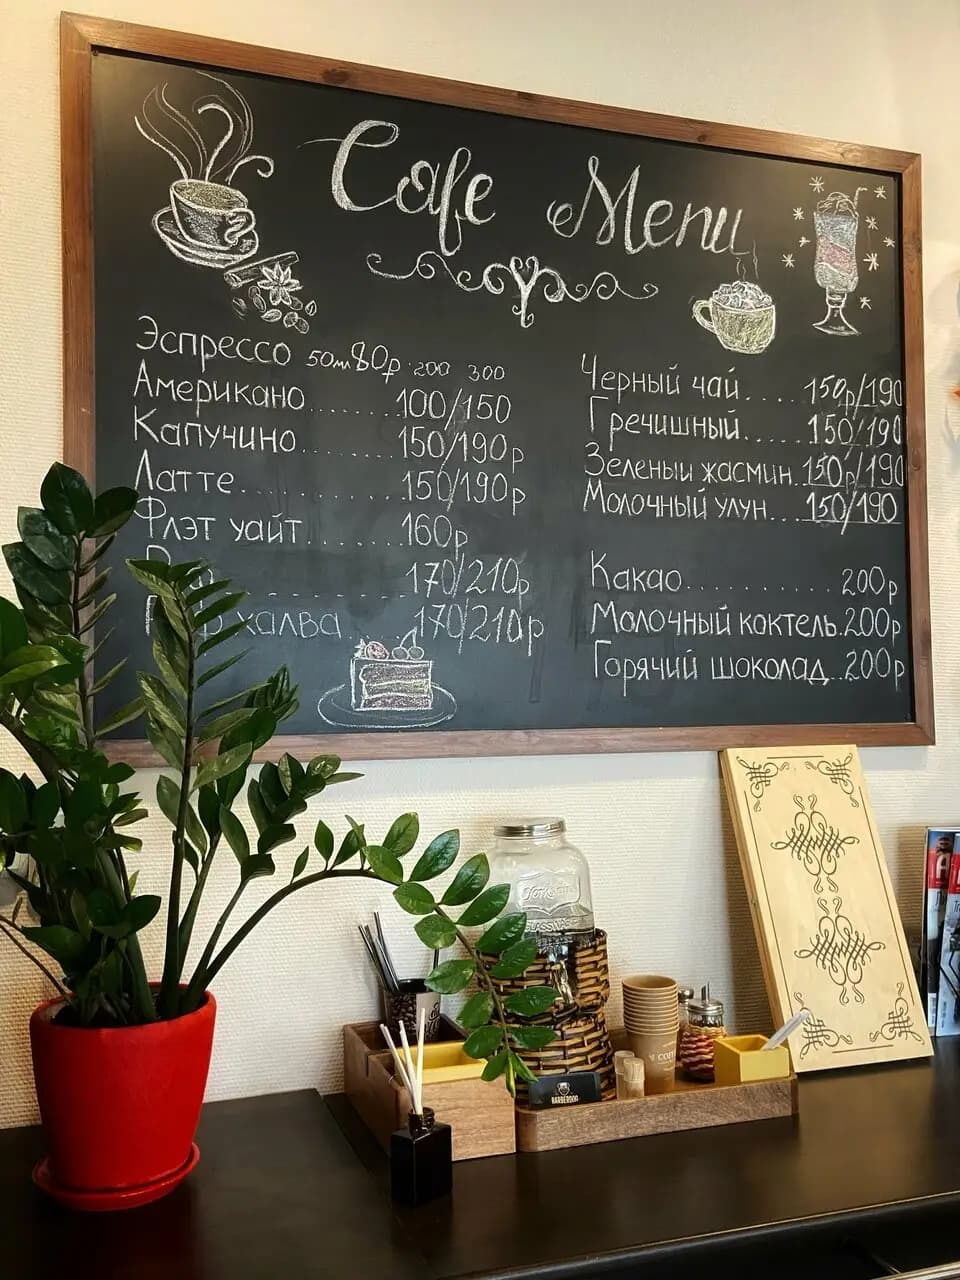 Cafe Menu
Эспрессо 50мл 80р 200 300
Американо......100/150
Капучино.........150/190р
Латте............150/190р
Флэт уайт........160р
170/210р
халва...170/210р
Черный чай.....150р/190
Гречишный......150/190
Зеленый жасмин..150р/190
Молочный улун...150/190
Какао...........200р
Молочный коктель.200р
Горячий шоколад..200р